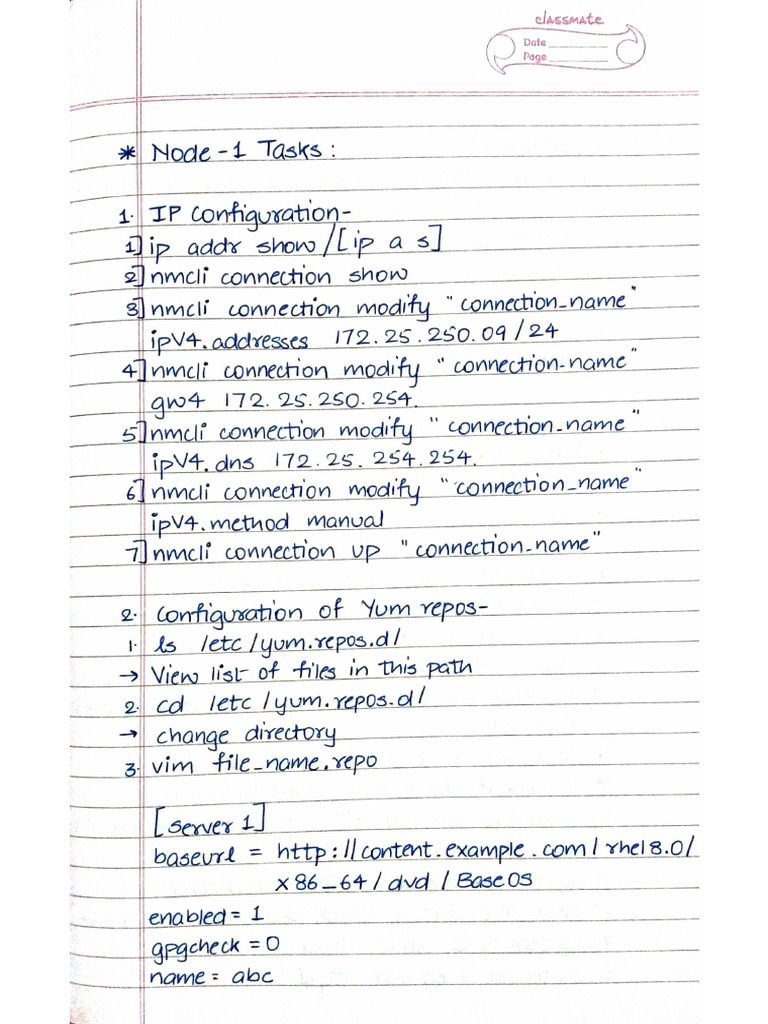 classmate
Date
Page
* Node-1 Tasks:
1. IP Configuration-
1] ip addr show/[ip a s]
2] nmcli connection show
3] nmcli connection modify "connection_name"
ipV4.addresses 172.25.250.09/24
4] nmcli connection modify "connection_name"
gw4 172.25.250.254.
5] nmcli connection modify "connection_name"
ipV4.dns 172.25.254.254.
6] nmcli connection modify "connection_name"
ipV4.method manual
7] nmcli connection up "connection_name"
2. Configuration of Yum repos-
1. ls /etc/yum.repos.d/
→ View list of files in this path
2. cd /etc/yum.repos.d/
→ change directory
3. vim file_name.repo
[server 1]
baseurl = http://content.example.com/rhel8.0/
x86_64/dvd/BaseOS
enabled = 1
gpgcheck = 0
name = abc